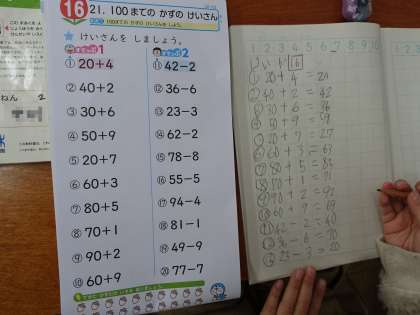 16
21. 100までの かずの けいさん
100までの かずの けいさん
★ けいさんを しましょう。
① 20+4
② 40+2
③ 30+6
④ 50+9
⑤ 20+7
⑥ 60+3
⑦ 80+5
⑧ 70+1
⑨ 90+2
⑩ 60+9
2
⑪ 42−2
⑫ 36−6
⑬ 23−3
⑭ 62−2
⑮ 78−8
⑯ 55−5
⑰ 94−4
⑱ 81−1
⑲ 49−9
⑳ 77−7
ねん 2
1 2 3 4 5 6 7 8 9 10
16
① 20+4=24
② 40+2=42
③ 30+6=36
④ 50+9=59
⑤ 20+7=27
⑥ 60+3=63
⑦ 80+5=85
⑧ 70+1=71
⑨ 90+2=92
⑩ 60+9=69
⑪ 42−2=40
⑫ 36−6=
⑬ 23−3=20